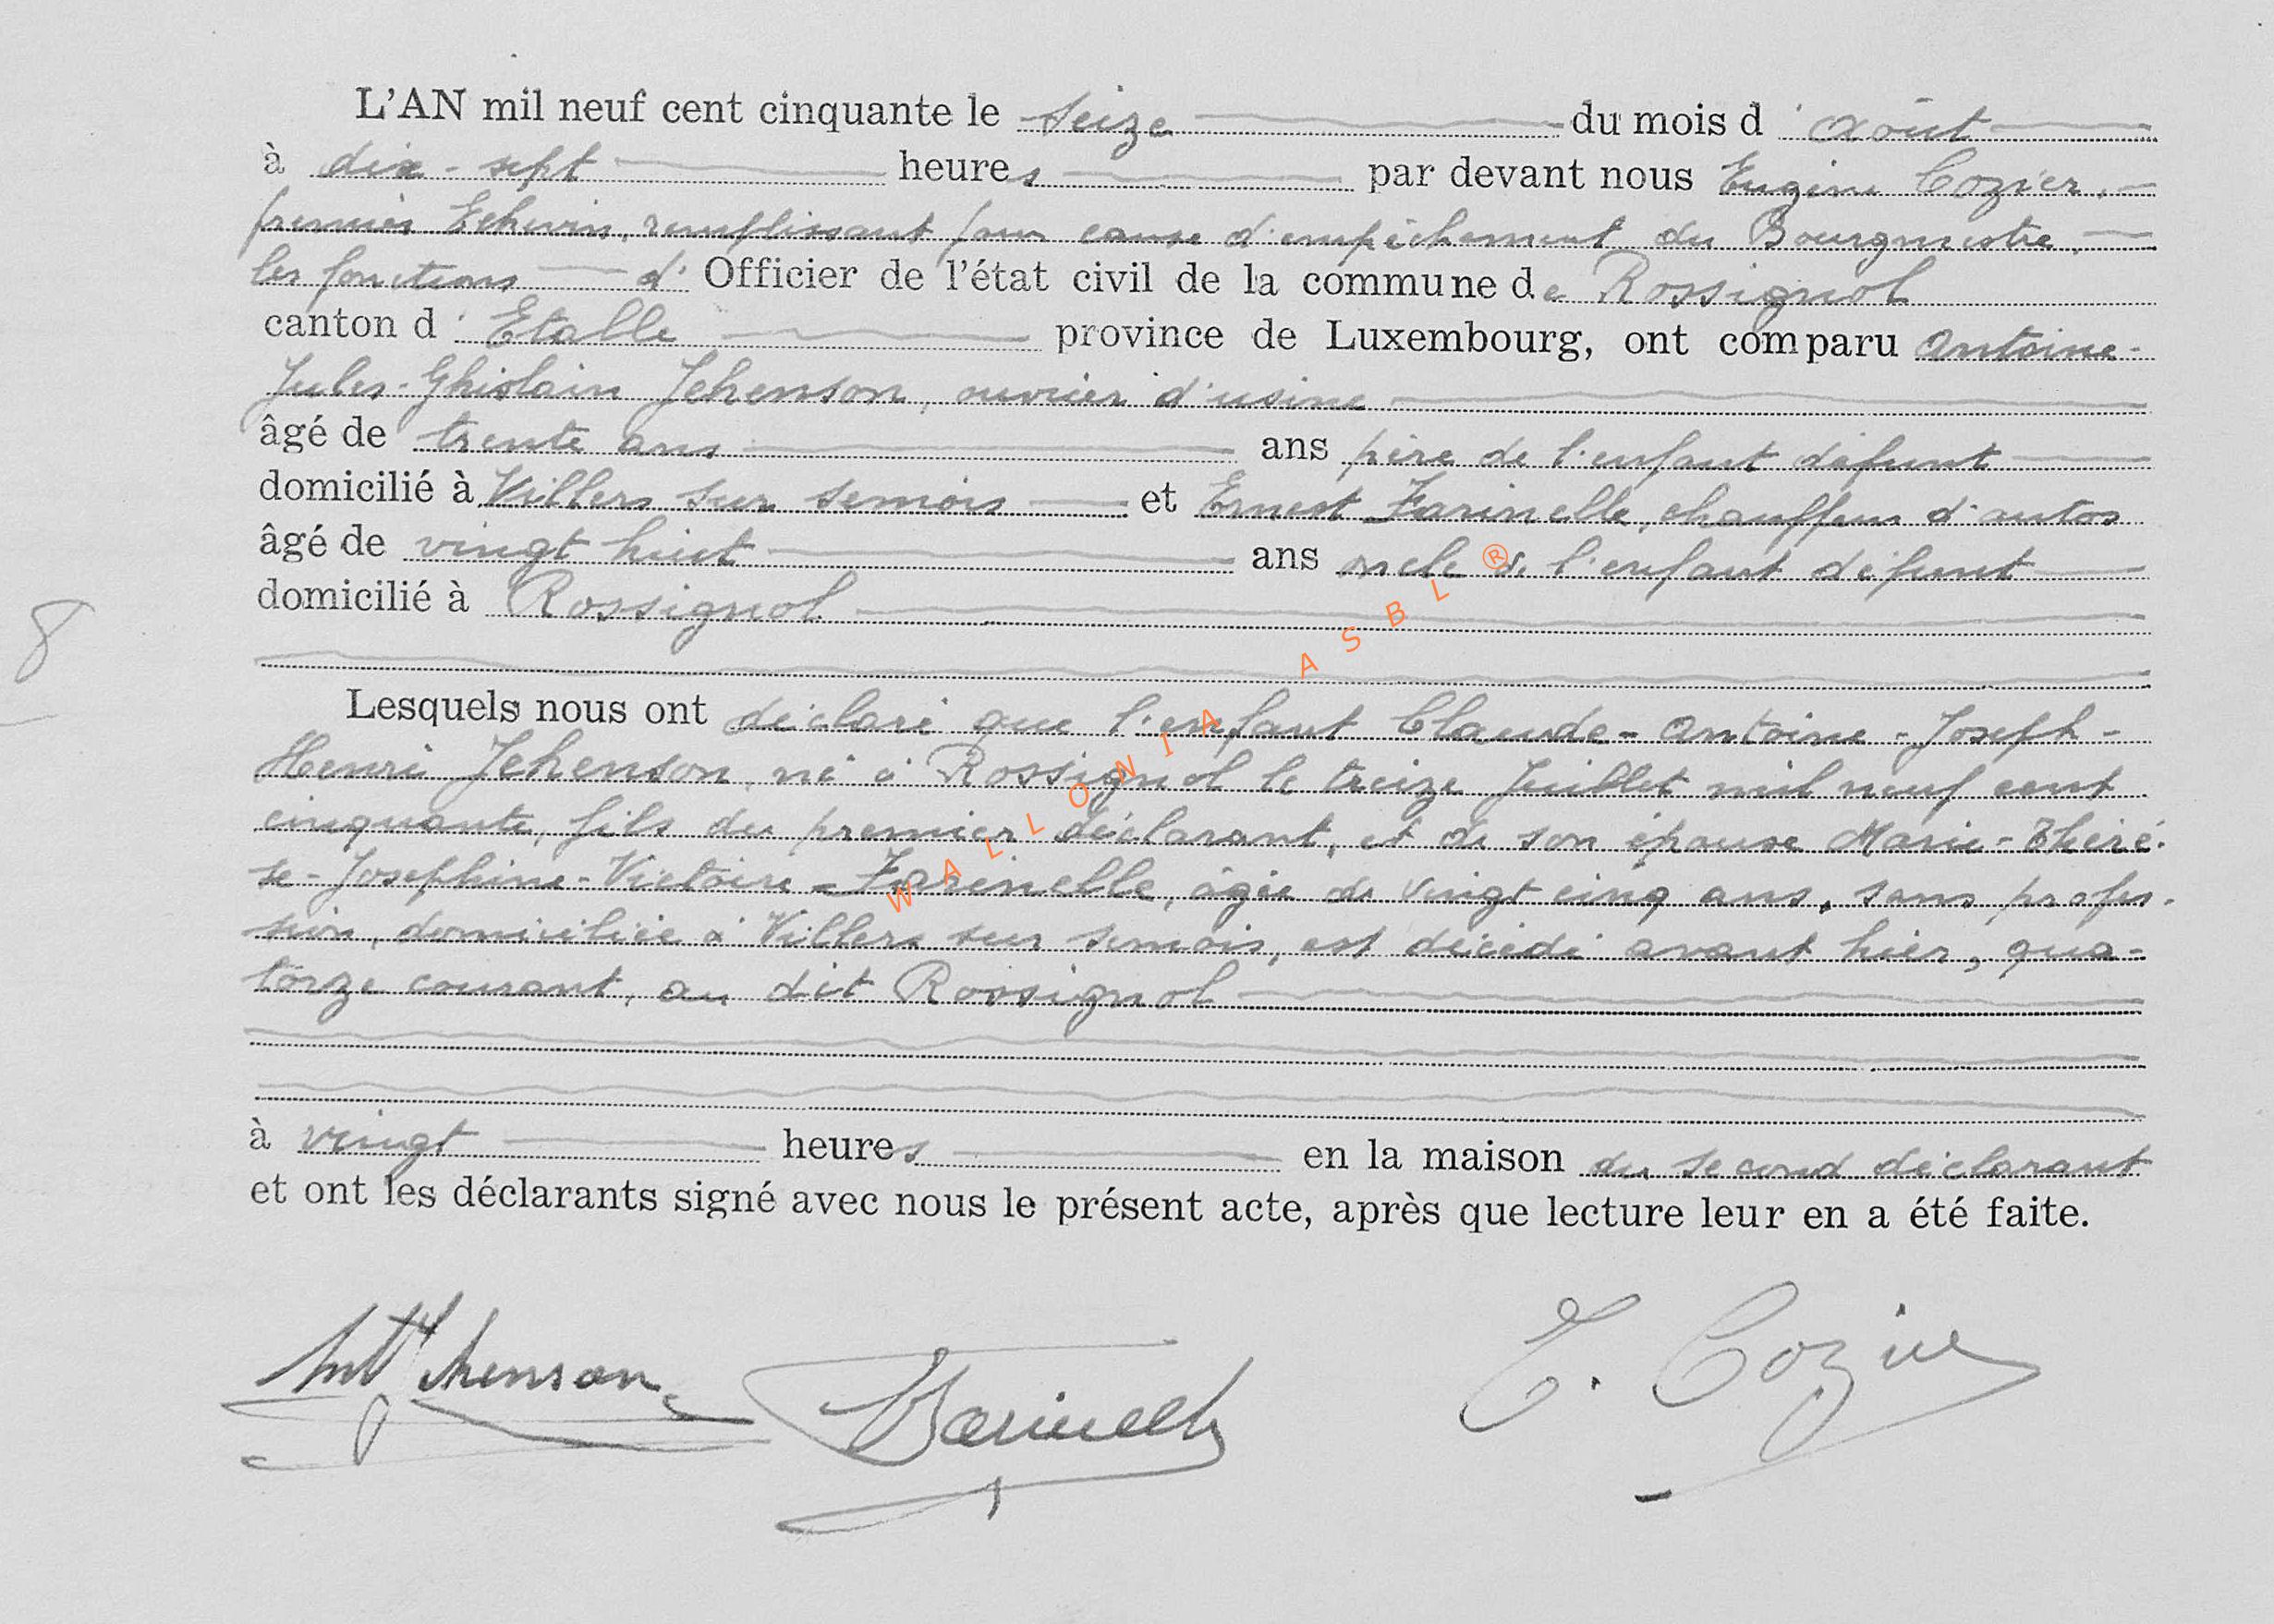 L'AN mil neuf cent cinquante le seize du mois d'août
à dix-sept heures par devant nous Eugène Cozier,
premier Echevin, remplissant pour cause d'empêchement du Bourgmestre,
les fonctions d'Officier de l'état civil de la commune de Rossignol
canton d'Etalle province de Luxembourg, ont comparu Antoine-
Jules-Ghislain Jehenson, ouvrier d'usine
âgé de trente ans ans père de l'enfant défunt
domicilié à Villers sur semois et Ernest Farinelle, chauffeur d'autos
âgé de vingt huit ans oncle de l'enfant défunt
domicilié à Rossignol
8
Lesquels nous ont déclaré que l'enfant Claude-Antoine-Joseph-
Henri Jehenson, né à Rossignol le treize Juillet mil neuf cent
cinquante, fils du premier déclarant, et de son épouse Marie-Thérè-
se-Joséphine-Victoire-Farinelle, âgée de vingt cinq ans, sans profes-
sion, domiciliée à Villers sur semois, est décédé avant hier, qua-
torze courant, au dit Rossignol
à vingt heures en la maison du second déclarant
et ont les déclarants signé avec nous le présent acte, après que lecture leur en a été faite.
Ant Jehenson Farinelle E. Cozier
WALLONIA ASBL ®